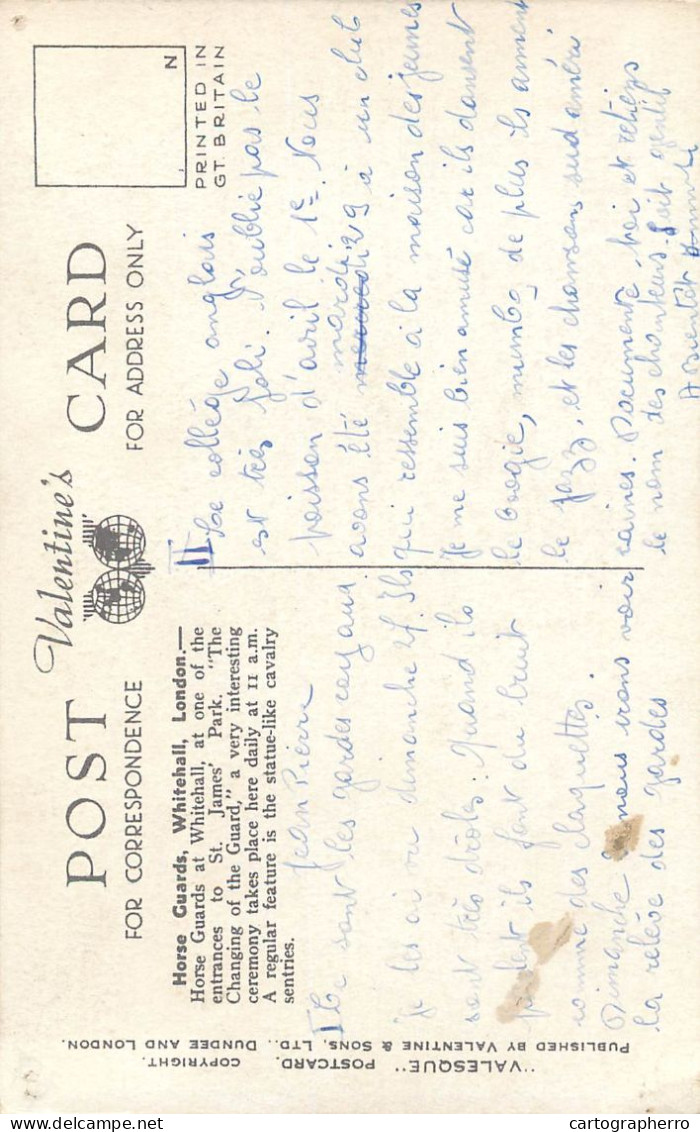 POST Valentine's CARD
FOR CORRESPONDENCE
FOR ADDRESS ONLY
N
PRINTED IN
GT. BRITAIN
Horse Guards, Whitehall, London.—
Horse Guards at Whitehall, at one of the
entrances to St. James' Park. "The
Changing of the Guard," a very interesting
ceremony takes place here daily at 11 a.m.
A regular feature is the statue-like cavalry
sentries.
Jean Pierre
I Ce sont les gardes royaux.
Je les ai vu dimanche 27. Ils
sont très drôles. Quand ils
ils font du bruit
comme des claquettes.
Dimanche nous irons voir
la relève des gardes
II Le collège anglais
est très joli. N'oublie pas le
poisson d'avril le 1er. Nous
avons été mercredi mardi 29 à un club
qui ressemble à la maison des jeunes
Je me suis bien amusé car ils dansent
le boogie, mumbo, de plus ils aiment
le jazz, et les chansons sud améri
caines. Documente toi et retiens
le nom des chanteurs. Soit gentil
"VALESQUE" POSTCARD. COPYRIGHT.
PUBLISHED BY VALENTINE & SONS, LTD., DUNDEE AND LONDON.
cartographerro